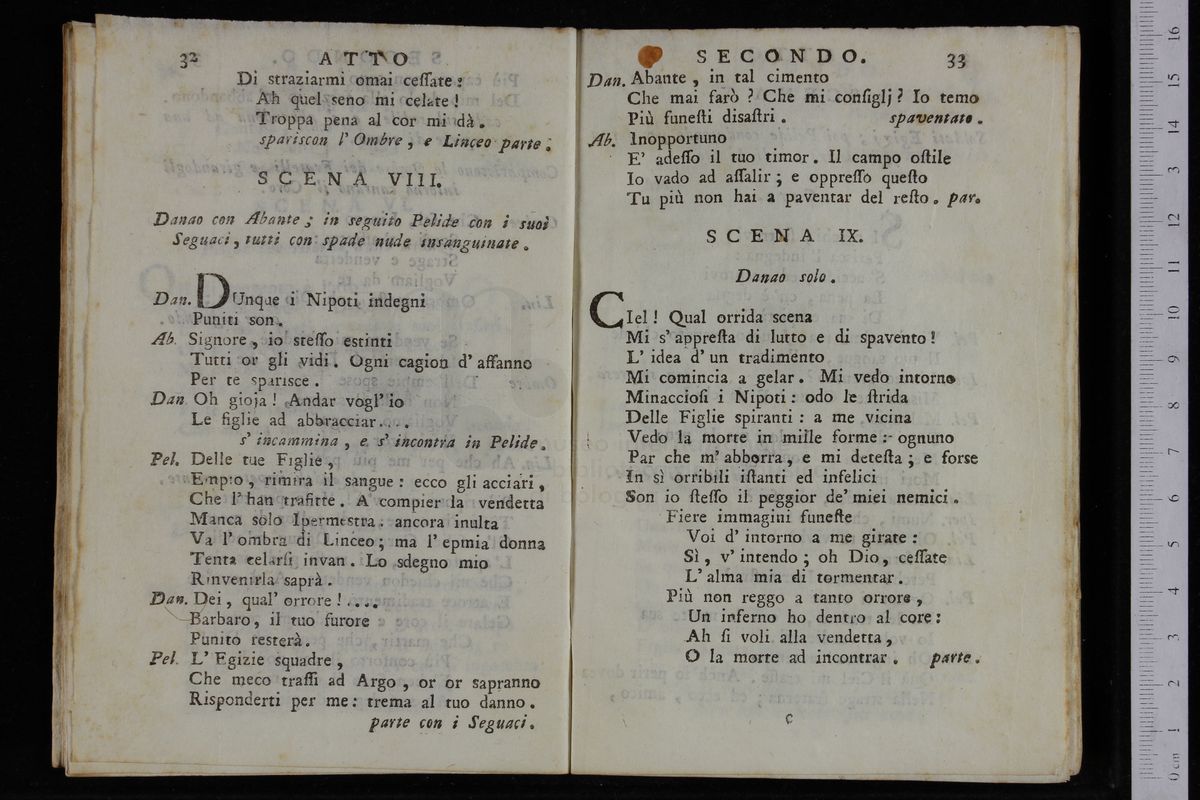 32 ATTO
Di straziarmi omai ceſſate:
Ah quel seno mi celate!
Troppa pena al cor mi dà.
spariscon l' Ombre, e Linceo parte.
SCENA VIII.
Danao con Abante; in seguito Pelide con i suoi
Seguaci, tutti con spade nude insanguinate.
Dan. DUnque i Nipoti indegni
Puniti son.
Ab. Signore, io steſſo estinti
Tutti or gli vidi. Ogni cagion d' affanno
Per te sparisce.
Dan. Oh gioja! Andar vogl' io
Le figlie ad abbracciar....
s' incammina, e s' incontra in Pelide.
Pel. Delle tue Figlie,
Empio, rimira il sangue: ecco gli acciari,
Che l' han trafitte. A compier la vendetta
Manca solo Ipermestra: ancora inulta
Va l' ombra di Linceo; ma l' epmia donna
Tenta celarſi invan. Lo sdegno mio
Rinvenirla saprà.
Dan. Dei, qual' orrore!....
Barbaro, il tuo furore
Punito resterà.
Pel. L' Egizie squadre,
Che meco traſſi ad Argo, or or sapranno
Risponderti per me: trema al tuo danno.
parte con i Seguaci.
SECONDO. 33
Dan. Abante, in tal cimento
Che mai farò? Che mi conſiglj? Io temo
Più funeſti diſaſtri. spaventato.
Ab. Inopportuno
E' adeſſo il tuo timor. Il campo oſtile
Io vado ad aſſalir; e oppreſſo queſto
Tu più non hai a paventar del reſto. par.
SCENA IX.
Danao solo.
CIel! Qual orrida scena
Mi s' appreſta di lutto e di spavento!
L' idea d' un tradimento
Mi comincia a gelar. Mi vedo intorno
Minaccioſi i Nipoti: odo le ſtrida
Delle Figlie spiranti: a me vicina
Vedo la morte in mille forme: ognuno
Par che m' abborra, e mi deteſta; e forse
In sì orribili iſtanti ed infelici
Son io ſteſſo il peggior de' miei nemici.
Fiere immagini funeſte
Voi d' intorno a me girate:
Sì, v' intendo; oh Dio, ceſſate
L' alma mia di tormentar.
Più non reggo a tanto orrore,
Un inferno ho dentro al core:
Ah ſi voli alla vendetta,
O la morte ad incontrar. parte.
C
0 cm 1 2 3 4 5 6 7 8 9 10 11 12 13 14 15 16